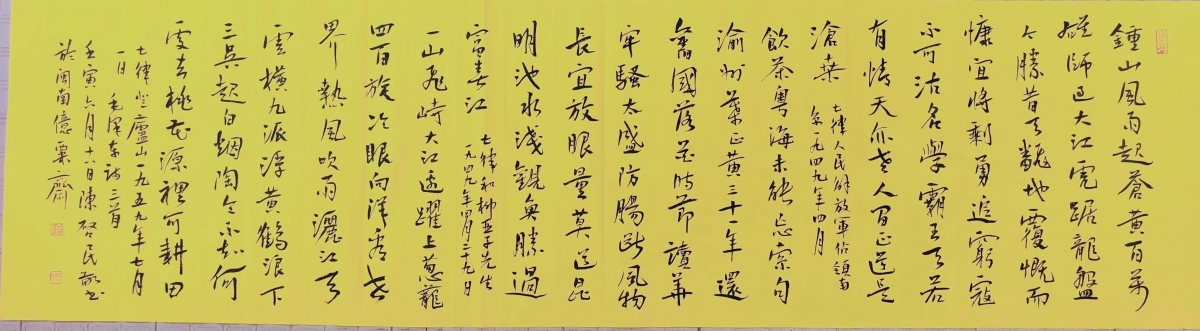 鍾山風雨起蒼黃百萬
雄師過大江虎踞龍盤
今勝昔天翻地覆慨而
慷宜將剩勇追窮寇
不可沽名學霸王天若
有情天亦老人間正道是
滄桑 七律人民解放軍佔領南
京一九四九年四月
飲茶粵海未能忘索句
渝州葉正黃三十一年還
舊國落花時節讀華
章牢騷太盛防腸斷風物
長宜放眼量莫道昆
明池水淺觀魚勝過
富春江 七律和柳亞子先生
一九四九年四月二十九日
一山飛峙大江邊躍上蔥蘢
四百旋冷眼向洋看世
界熱風吹雨灑江天
雲橫九派浮黃鶴浪下
三吳起白烟陶令不知何
處去桃花源裡可耕田
七律登廬山一九五九年七月
一日 毛澤東詩三首
壬寅六月十六日陳啓民敬書
於閩南億粟齋